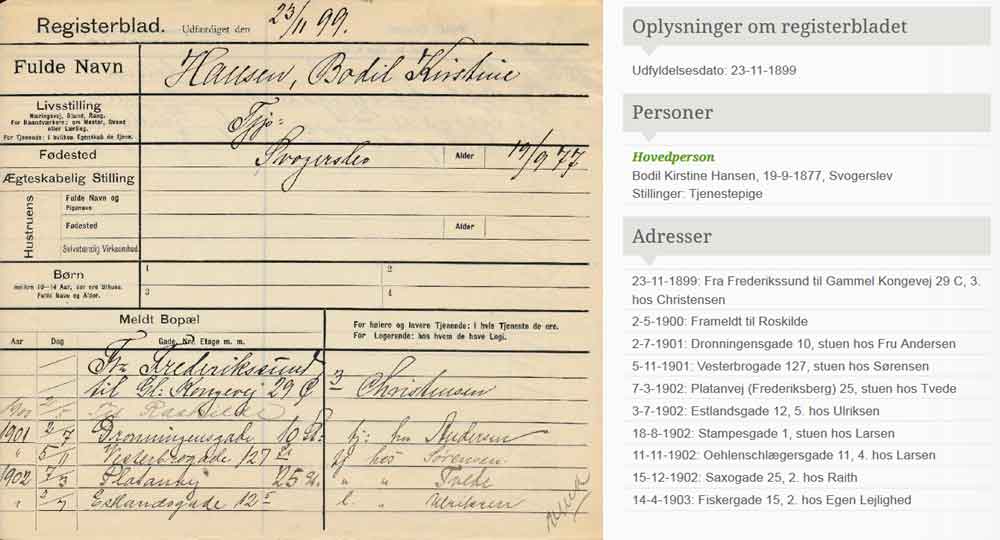 Registerblad. Udfærdiget den 23/11 99.
Fulde Navn Hansen, Bodil Kirstine
Livsstilling
Næringsvej, Stand, Rang.
For Haandværkere: om Mester, Svend
eller Lærling.
For Tjenende: i hvilken Egenskab de tjene.
Tjp:
Fødested Svogerslev Alder 19/9 77
Ægteskabelig Stilling
Hustruens
Fulde Navn og
Pigenavn
Fødested Alder
Selvstændig Virksomhed
Børn
mellem 10-14 Aar, der ere
Fulde Navn og Alder.
1 2
3 4
Meldt Bopæl
For højere og lavere Tjenende: i hvis Tjeneste de ere.
For Logerende: hos hvem de have Logi.
Aar Dag Gade, Nr., Etage m. m.
Fra Frederikssund
til Gl: Kongevej 29 C 3 Christensen
1900 2/5 Til Roskilde
1901 2/7 Dronningensgade 10 St. tj: hos Andersen
" 5/11 Vesterbrogade 127 St tj hos Sørensen
1902 7/3 Platanvej 25 St. " " Tvede
" 3/7 Estlandsgade 12 5 l " Ulriksen
Oplysninger om registerbladet
Udfyldelsesdato: 23-11-1899
Personer
Hovedperson
Bodil Kirstine Hansen, 19-9-1877, Svogerslev
Stillinger: Tjenestepige
Adresser
23-11-1899: Fra Frederikssund til Gammel Kongevej 29 C, 3.
hos Christensen
2-5-1900: Frameldt til Roskilde
2-7-1901: Dronningensgade 10, stuen hos Fru Andersen
5-11-1901: Vesterbrogade 127, stuen hos Sørensen
7-3-1902: Platanvej (Frederiksberg) 25, stuen hos Tvede
3-7-1902: Estlandsgade 12, 5. hos Ulriksen
18-8-1902: Stampesgade 1, stuen hos Larsen
11-11-1902: Oehlenschlægersgade 11, 4. hos Larsen
15-12-1902: Saxogade 25, 2. hos Raith
14-4-1903: Fiskergade 15, 2. hos Egen Lejlighed